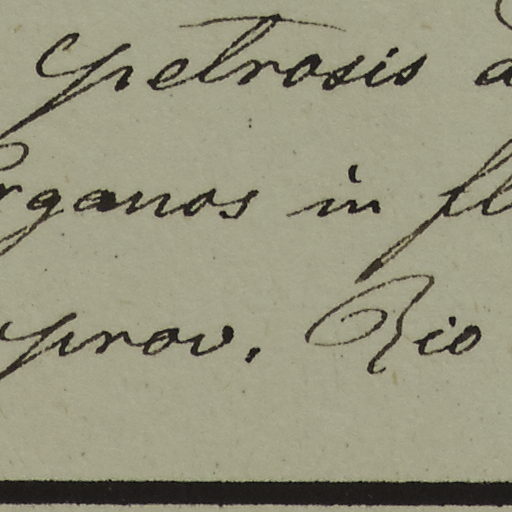 petrosis
Organos in fl
prov. Rio